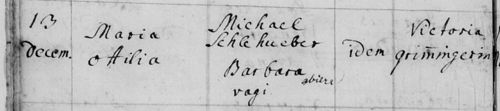 13
Decem.
Maria
Otilia
Michael
Schlehueber
Barbara
vagi
idem
Victoria
grimingerin